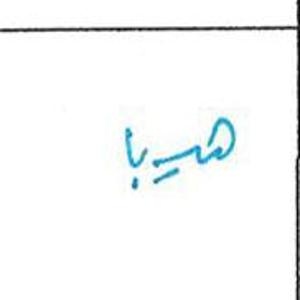 هيبا